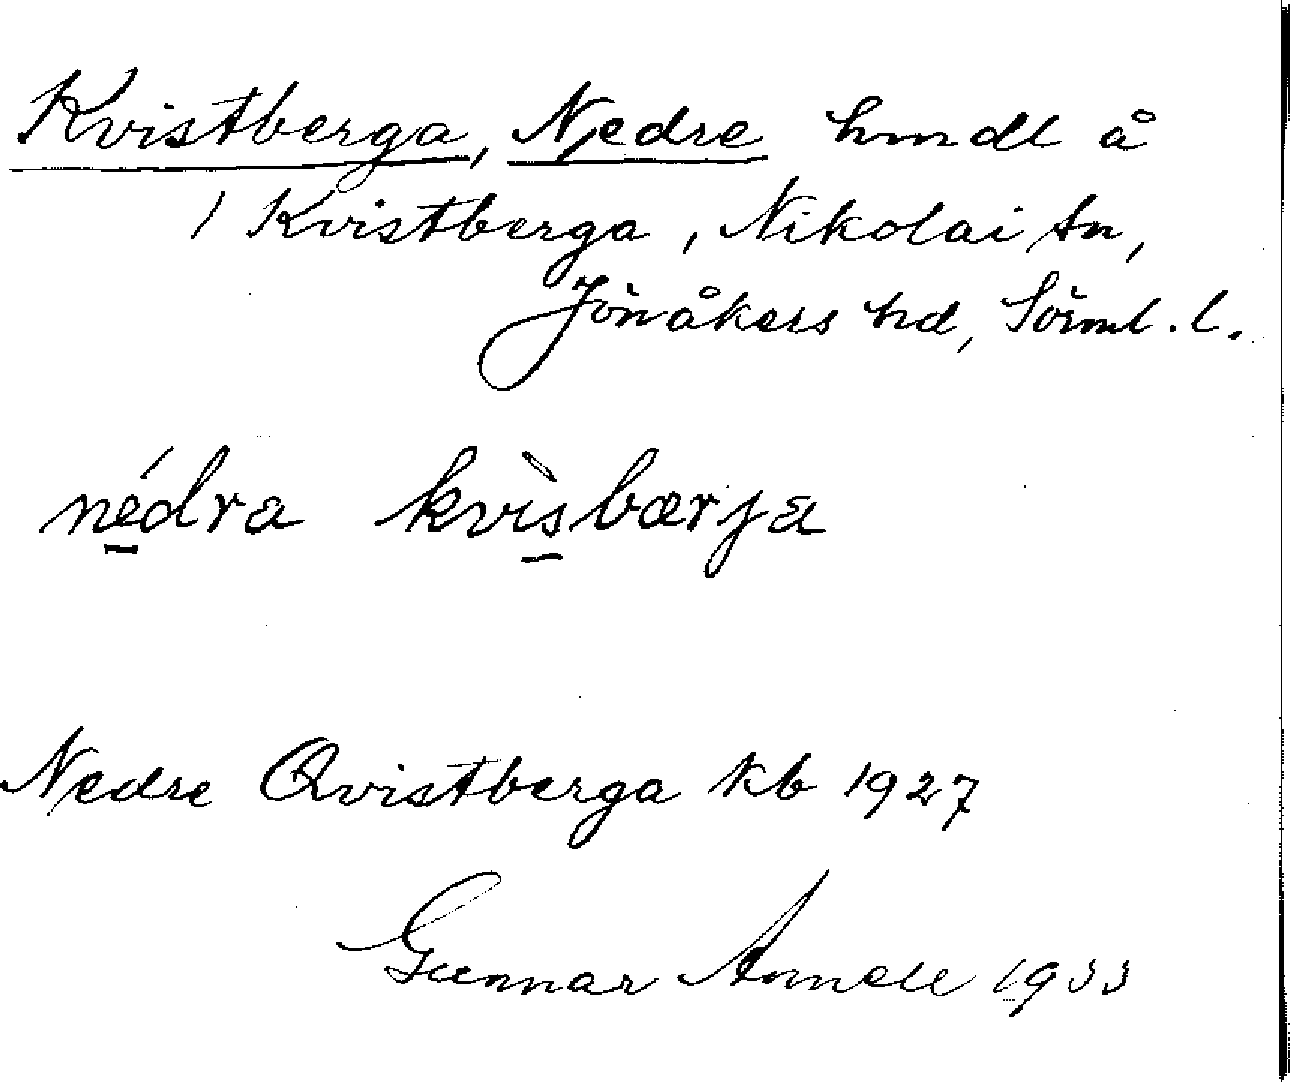 Kvistberga, Nedre hmdl å
1 Kvistberga, Nikolai sn,
Jönåkers hd, Sörml. l.
nédra kvìsbærja
Nedre Qvistberga kb 1927
Gunnar Annell 1933